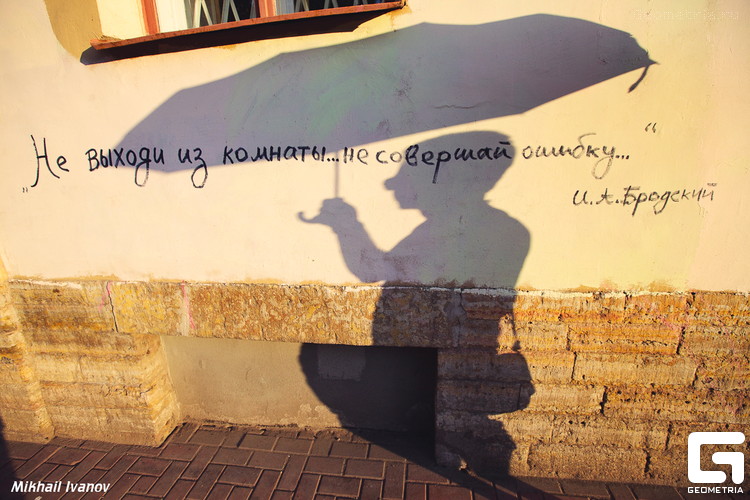 „Не выходи из комнаты...не совершай ошибку...“
И.А.Бродский
Mikhail Ivanov
GEOMETRIA